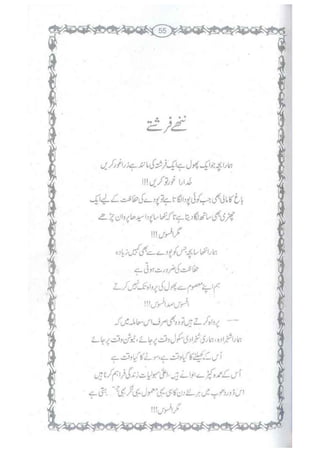 55
ننھے فرشتے
ہمارا بچہ جو ایک پھول ہے ایک فرشتہ کی مانند ہے ذرا غور کریں
خدارا غور تو کریں!!!
باغ کا مالی بھی جب کوئی پودا لگاتا ہے تو پودے کی حفاظت کے لیے ایک
چھڑی بھی ساتھ لگا دیتا ہے تاکہ ننھا سا پودا سیدھا پروان چڑھے
مگر افسوس!!!
ہمارا ننھا سا بچہ جس کو پودے سے بھی کہیں زیادہ
حفاظت کی ضرورت ہوتی ہے
ہم اپنے معصوم سے پھول کی پرواہ تک نہیں کرتے
افسوس صد افسوس!!!
پرواہ کرتے ہیں تو وہ بھی صرف اس معاملہ میں کہ
ہمارا شہزادہ، ہماری شہزادی سکول وقت پر جائے، ٹیوشن وقت پر جائے
اُس کے کھیلنے کا کیا وقت ہے، سونے کا کیا وقت ہے
اُس کے عمدہ کپڑے سلوانے ہیں، اعلیٰ سہولیات زندگی فراہم کرنا ہیں
اس دورہ میں ہر نئے دن کا یہی معمول یہی فکر یہی ہے
مگر افسوس!!!